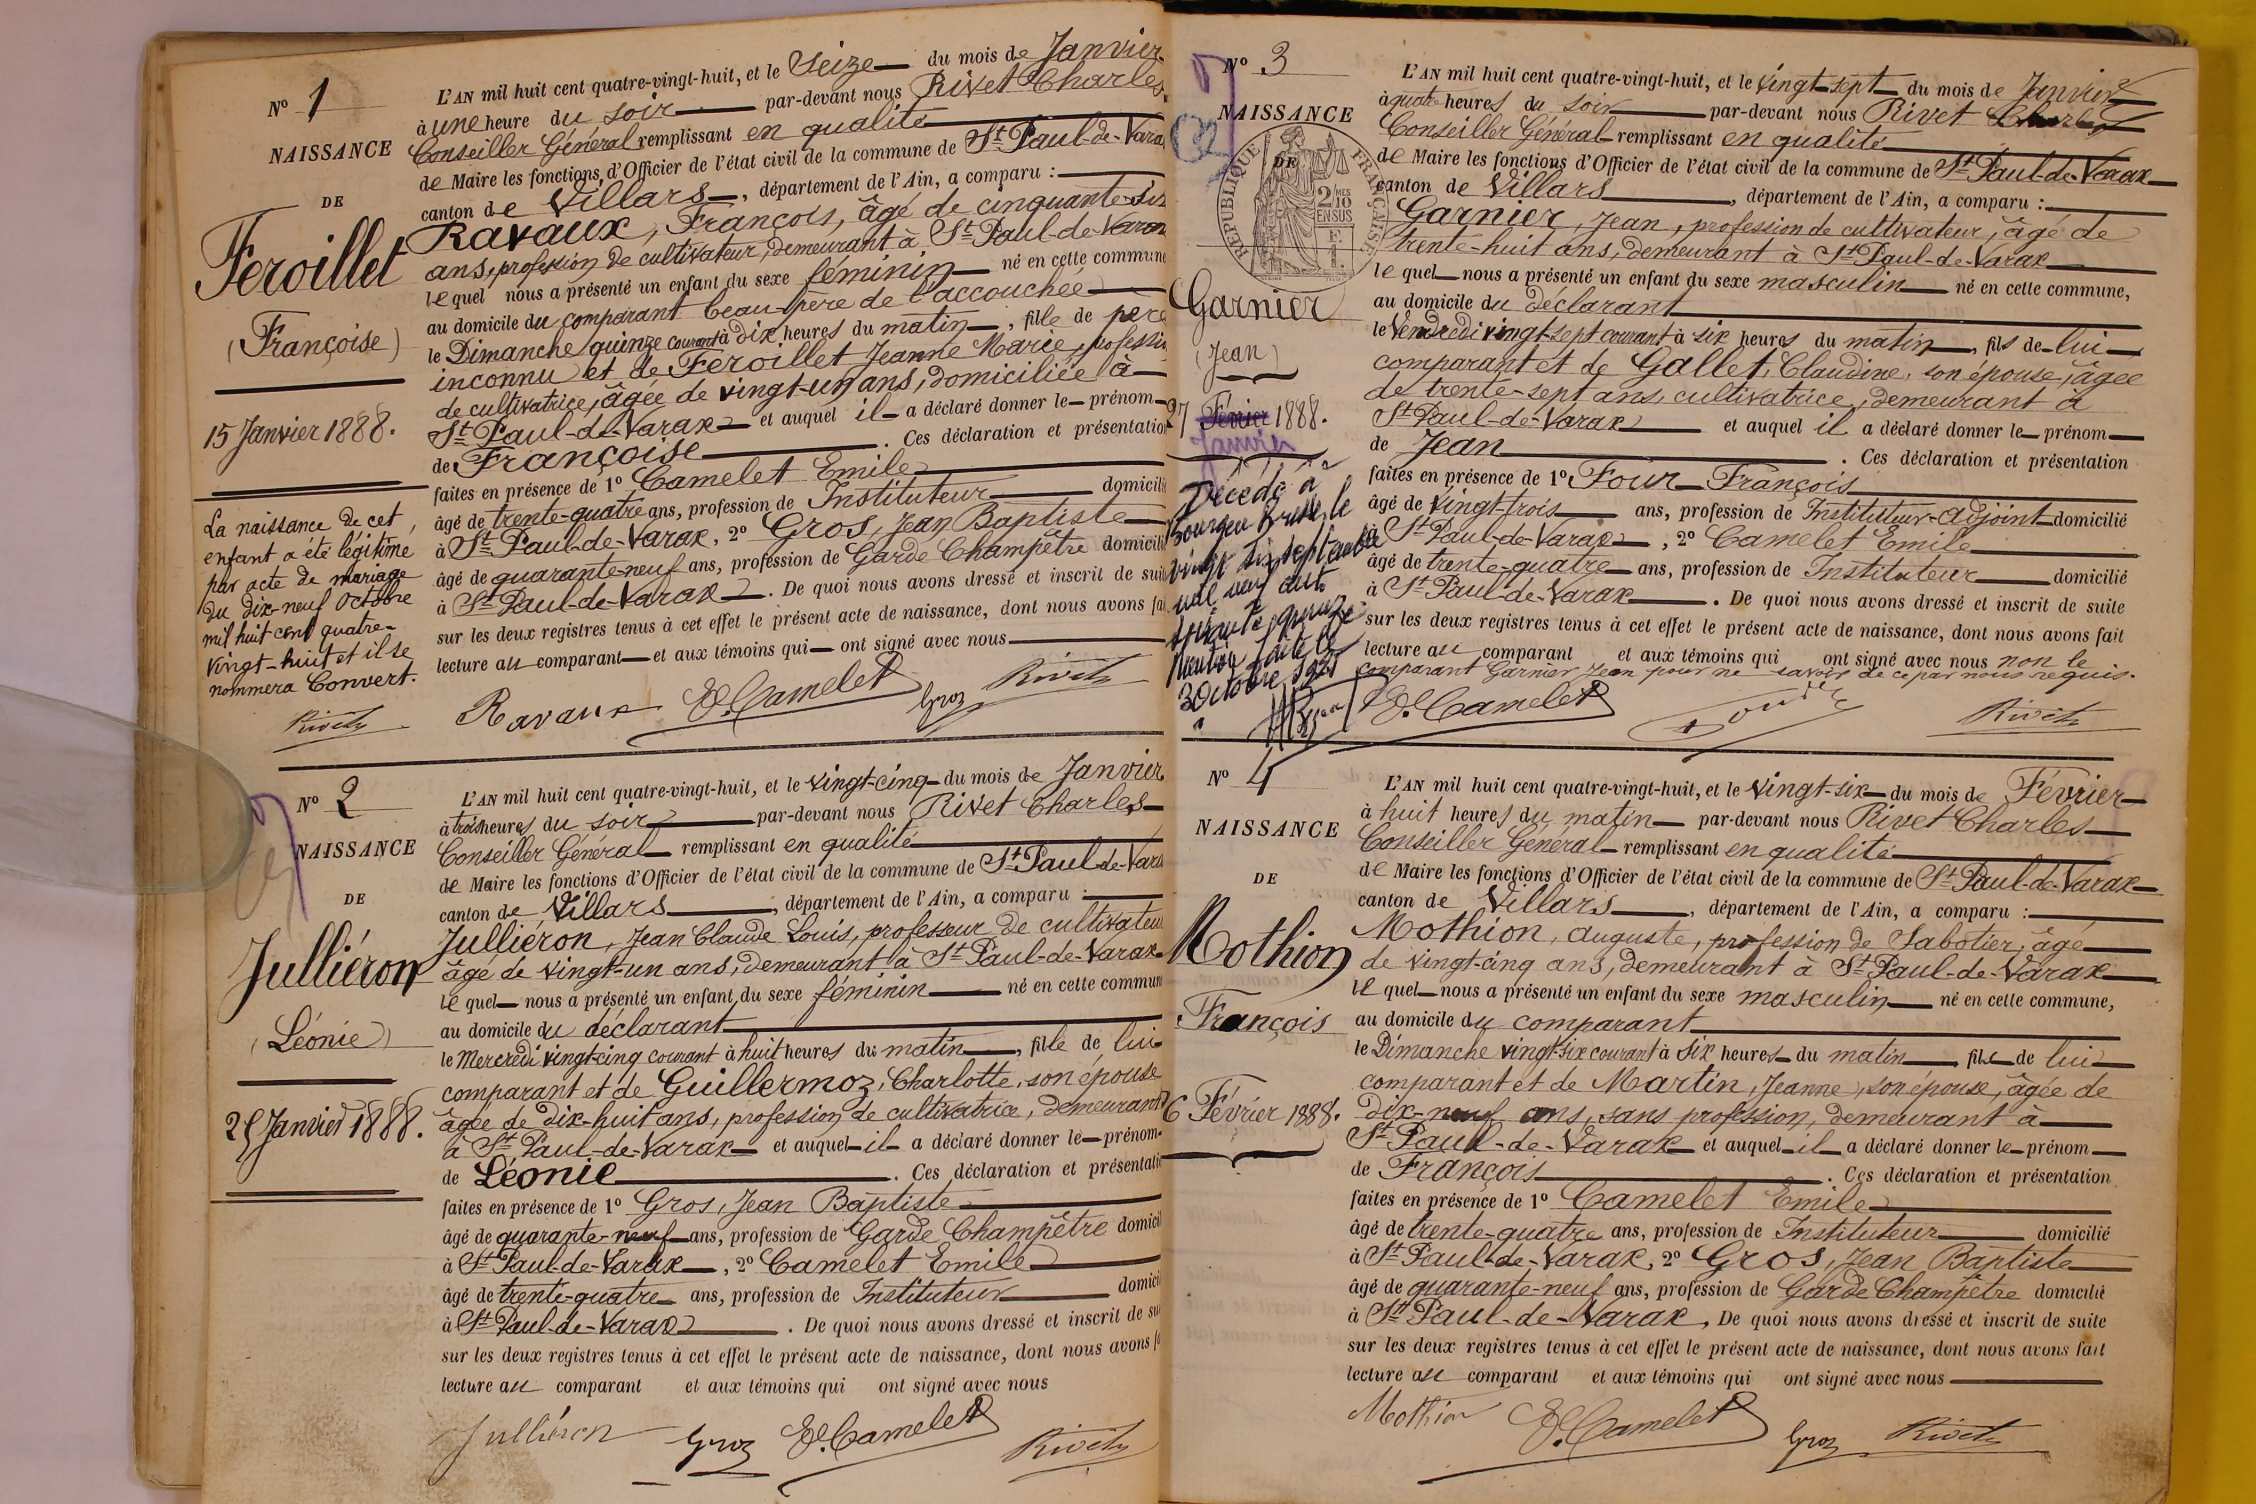 N° 1
NAISSANCE
DE
Feroillet
(Françoise)
15 Janvier 1888.
La naissance de cet
enfant a été légitimé
par acte de mariage
du dix-neuf Octobre
mil huit cent quatre-
vingt-huit et il se
nommera Convert.
Rivet
L'AN mil huit cent quatre-vingt-huit, et le Seize du mois de Janvier
à une heure du soir par-devant nous Rivet Charles
Conseiller Général remplissant en qualité
de Maire les fonctions d'Officier de l'état civil de la commune de St Paul-de-Varax
canton de Villars, département de l'Ain, a comparu :
Ravaux, François, âgé de cinquante-six
ans, profession de cultivateur, demeurant à St Paul-de-Varax
lequel nous a présenté un enfant du sexe féminin né en cette commune
au domicile du comparant beau-père de l'accouchée
le Dimanche quinze courant à dix heures du matin, fille de père
inconnu et de Feroillet Jeanne Marie, profession
de cultivatrice, âgée de vingt-un ans, domiciliée à
St Paul-de-Varax et auquel il a déclaré donner le prénom
de Françoise. Ces déclaration et présentation
faites en présence de 1° Camelet Emile
âgé de trente-quatre ans, profession de Instituteur domicilié
à St Paul-de-Varax, 2° Gros, Jean Baptiste
âgé de quarante-neuf ans, profession de Garde Champêtre domicilié
à St Paul-de-Varax. De quoi nous avons dressé et inscrit de suite
sur les deux registres tenus à cet effet le présent acte de naissance, dont nous avons fai
lecture au comparant et aux témoins qui ont signé avec nous
Ravaux E. Camelet Gros Rivet
N° 2
NAISSANCE
DE
Julliéron
(Léonie)
25 Janvier 1888.
L'AN mil huit cent quatre-vingt-huit, et le vingt-cinq du mois de Janvier
à trois heures du soir par-devant nous Rivet Charles
Conseiller Général remplissant en qualité
de Maire les fonctions d'Officier de l'état civil de la commune de St Paul-de-Vara
canton de Villars, département de l'Ain, a comparu :
Julliéron, Jean Claude Louis, professeur de cultivateur
âgé de vingt-un ans, demeurant à St Paul-de-Varax
le quel nous a présenté un enfant du sexe féminin né en cette commun
au domicile du déclarant
le Mercredi vingt-cinq courant à huit heures du matin, fille de lui
comparant et de Guillermoz, Charlotte, son épouse
âgée de dix-huit ans, profession de cultivatrice, demeurant
à St Paul-de-Varax et auquel il a déclaré donner le prénom
de Léonie. Ces déclaration et présentatio
faites en présence de 1° Gros, Jean Baptiste
âgé de quarante-neuf ans, profession de Garde Champêtre domicil
à St Paul-de-Varax, 2° Camelet Emile
âgé de trente-quatre ans, profession de Instituteur domicil
à St Paul-de-Varax. De quoi nous avons dressé et inscrit de sui
sur les deux registres tenus à cet effet le présent acte de naissance, dont nous avons f
lecture au comparant et aux témoins qui ont signé avec nous
Julliéron Gros E. Camelet Rivet
N° 3
NAISSANCE
DE
RÉPUBLIQUE FRANÇAISE
2/10 MES
EN SUS
Garnier
(Jean)
27 Février 1888.
Janvier
Décédé à
Bourg en Bresse, le
vingt six septembre
mil neuf cent
soixante quinze
Mention faite le
3 Octobre 1975
L'AN mil huit cent quatre-vingt-huit, et le vingt-sept du mois de Janvier
à quatre heures du soir par-devant nous Rivet Charles
Conseiller Général remplissant en qualité
de Maire les fonctions d'Officier de l'état civil de la commune de St Paul-de-Varax
canton de Villars, département de l'Ain, a comparu :
Garnier, Jean, profession de cultivateur, âgé de
trente-huit ans, demeurant à St Paul-de-Varax
le quel nous a présenté un enfant du sexe masculin né en cette commune,
au domicile du déclarant
le Vendredi vingt-sept courant à six heures du matin, fils de lui
comparant et de Gallet, Claudine, son épouse, âgée
de trente-sept ans, cultivatrice, demeurant à
St Paul-de-Varax et auquel il a déclaré donner le prénom
de Jean. Ces déclaration et présentation
faites en présence de 1° Four François
âgé de vingt-trois ans, profession de Instituteur-adjoint domicilié
à St Paul-de-Varax, 2° Camelet Emile
âgé de trente-quatre ans, profession de Instituteur domicilié
à St Paul-de-Varax. De quoi nous avons dressé et inscrit de suite
sur les deux registres tenus à cet effet le présent acte de naissance, dont nous avons fait
lecture au comparant et aux témoins qui ont signé avec nous non le
comparant Garnier Jean pour ne savoir de ce par nous requis.
E. Camelet Rivet
N° 4
NAISSANCE
DE
Mothion
François
6 Février 1888.
L'AN mil huit cent quatre-vingt-huit, et le vingt-six du mois de Février
à huit heures du matin par-devant nous Rivet Charles
Conseiller Général remplissant en qualité
de Maire les fonctions d'Officier de l'état civil de la commune de St Paul-de-Varax
canton de Villars, département de l'Ain, a comparu :
Mothion, auguste, profession de Sabotier, âgé
de vingt-cinq ans, demeurant à St Paul-de-Varax
le quel nous a présenté un enfant du sexe masculin né en cette commune,
au domicile du comparant
le Dimanche vingt-six courant à six heures du matin fils de lui
comparant et de Martin, Jeanne, son épouse, âgée de
dix-neuf ans, sans profession, demeurant à
St Paul-de-Varax et auquel il a déclaré donner le prénom
de François. Ces déclaration et présentation
faites en présence de 1° Camelet Emile
âgé de trente-quatre ans, profession de Instituteur domicilié
à St Paul-de-Varax, 2° Gros, Jean Baptiste
âgé de quarante-neuf ans, profession de Garde Champêtre domicilié
à St Paul-de-Varax, De quoi nous avons dressé et inscrit de suite
sur les deux registres tenus à cet effet le présent acte de naissance, dont nous avons fait
lecture au comparant et aux témoins qui ont signé avec nous
Mothion E. Camelet Gros Rivet